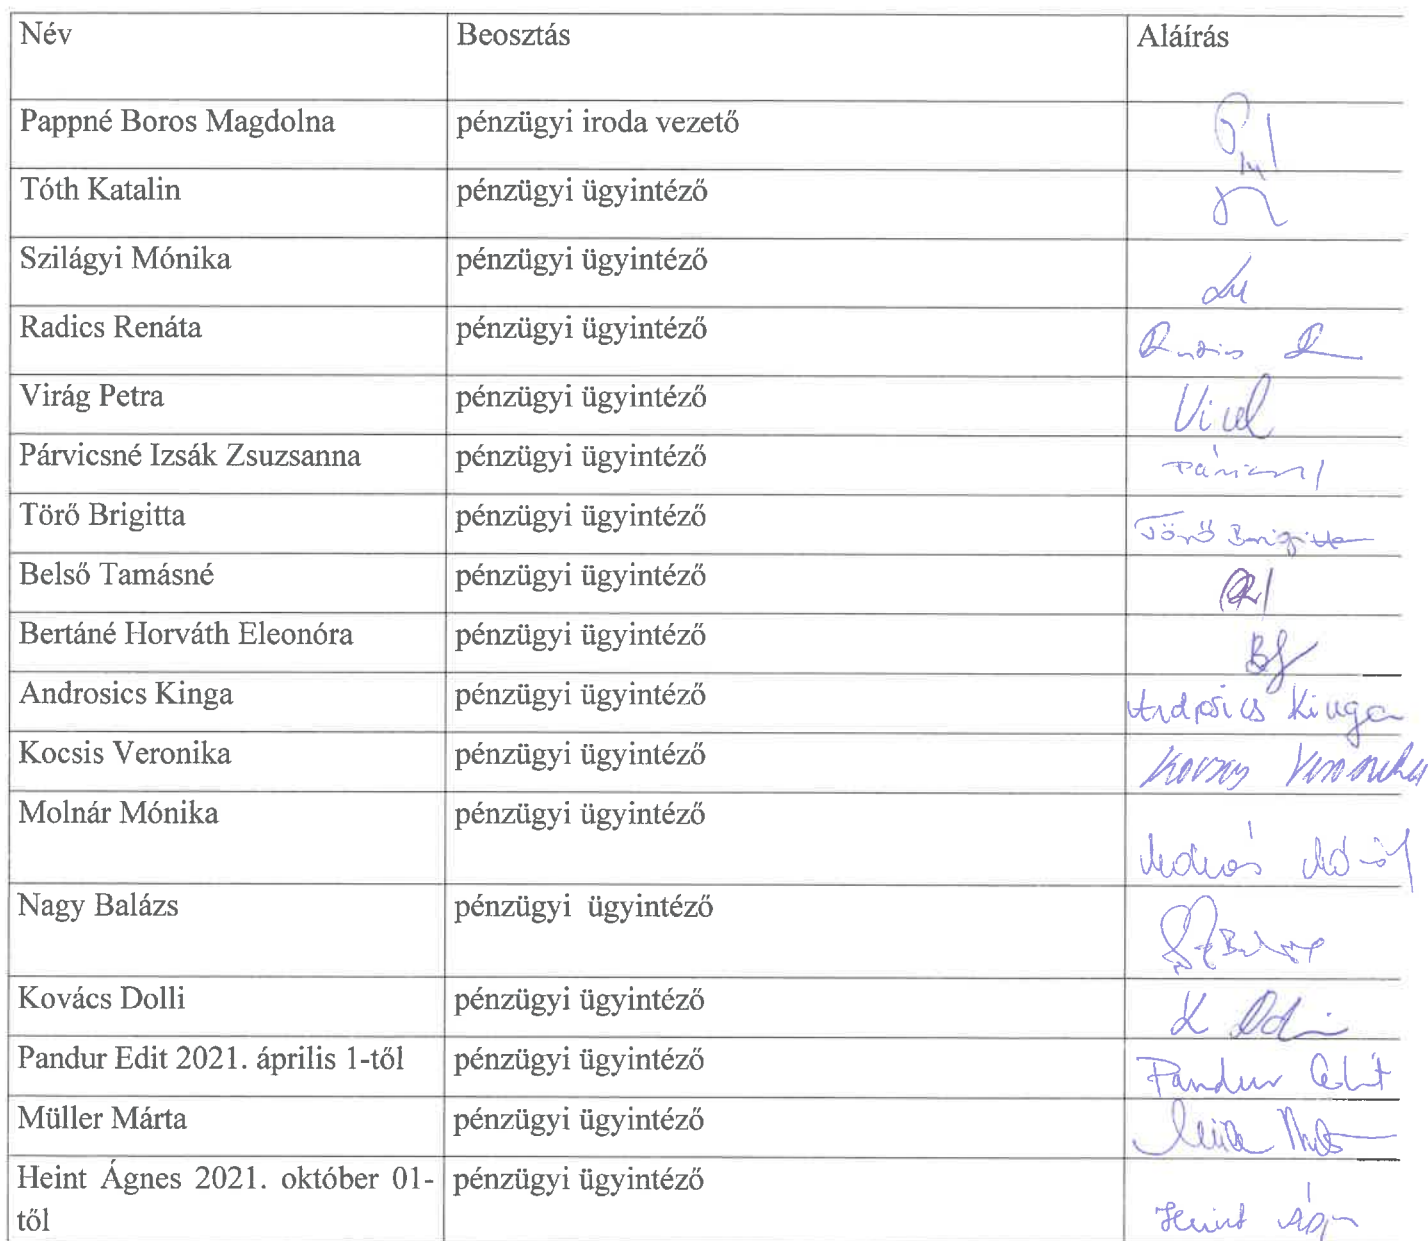 Név Beosztás Aláírás
Pappné Boros Magdolna pénzügyi iroda vezető
Tóth Katalin pénzügyi ügyintéző
Szilágyi Mónika pénzügyi ügyintéző
Radics Renáta pénzügyi ügyintéző
Virág Petra pénzügyi ügyintéző
Párvicsné Izsák Zsuzsanna pénzügyi ügyintéző
Törő Brigitta pénzügyi ügyintéző Törő Brigitta
Belső Tamásné pénzügyi ügyintéző
Bertáné Horváth Eleonóra pénzügyi ügyintéző
Androsics Kinga pénzügyi ügyintéző Androsics Kinga
Kocsis Veronika pénzügyi ügyintéző Kocsis Veronika
Molnár Mónika pénzügyi ügyintéző
Nagy Balázs pénzügyi ügyintéző
Kovács Dolli pénzügyi ügyintéző
Pandur Edit 2021. április 1-től pénzügyi ügyintéző Pandur Edit
Müller Márta pénzügyi ügyintéző
Heint Ágnes 2021. október 01- pénzügyi ügyintéző
től Heint